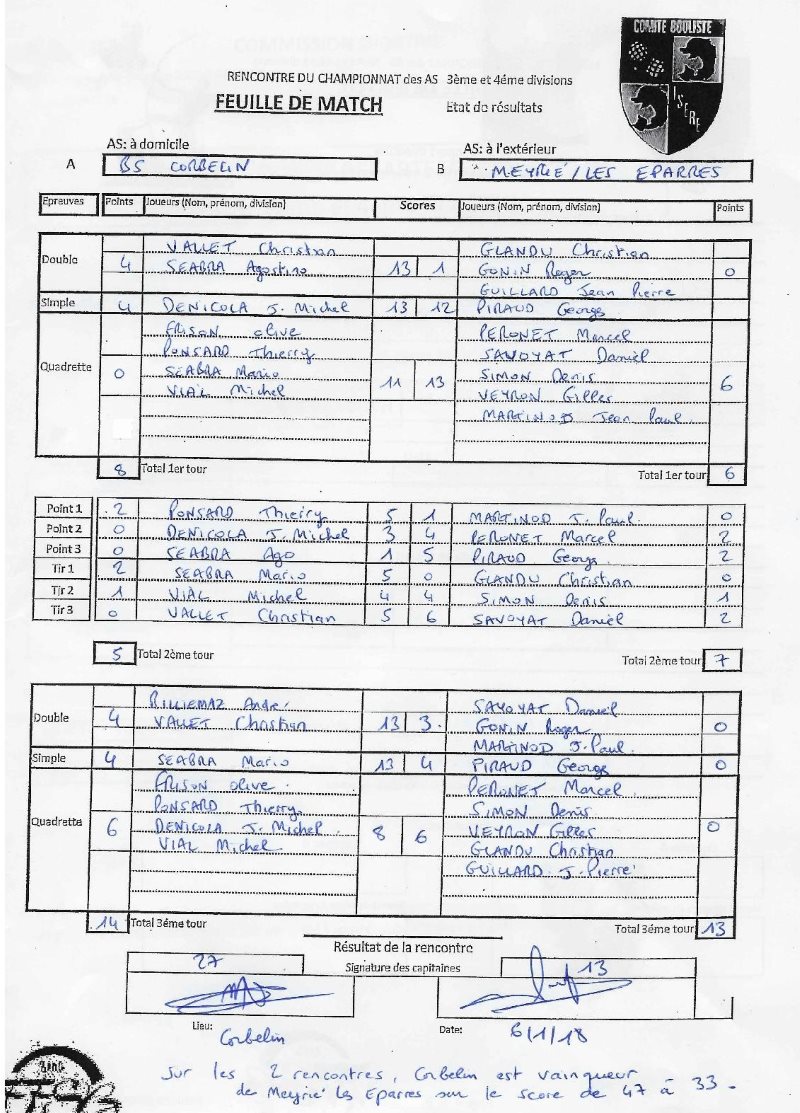 COMITÉ BOULISTE
ISERE
RENCONTRE DU CHAMPIONNAT des AS 3ème et 4éme divisions
FEUILLE DE MATCH Etat de résultats
AS: à domicile AS: à l'extérieur
A BS CORBELIN B MEYRIÉ/LES EPARRES
Epreuves Points Joueurs (Nom, prénom, division) Scores Joueurs (Nom, prénom, division) Points
VALLET Christian GLANDU Christian
Double 4 SEABRA Agostino 13 1 GONIN Roger 0
GUILLARD Jean Pierre
Simple 4 DENICOLA J. Michel 13 12 PIRAUD Georges
FRISON Olive PERONET Marcel
PONSARD Thierry SAVOYAT Daniel
Quadrette 0 SEABRA Mario 11 13 SIMON Denis 6
VIAL Michel VEYRON Gilles
MARTINOD Jean Paul.
8 Total 1er tour Total 1er tour 6
Point 1 2 PONSARD Thierry 5 1 MARTINOD J. Paul. 0
Point 2 0 DENICOLA J. Michel 3 4 PERONET Marcel 2
Point 3 0 SEABRA Ago 1 5 PIRAUD Georgs 2
Tir 1 2 SEABRA Mario 5 0 GLANDU Christian 0
Tir 2 1 VIAL Michel 4 4 SIMON Denis 1
Tir 3 0 VALLET Christian 5 6 SAVOYAT Daniel 2
5 Total 2ème tour Total 2ème tour 7
BILLIEMAZ André SAVOYAT Daniel
Double 4 VALLET Christian 13 3. GONIN Roger 0
MARTINOD J. Paul.
Simple 4 SEABRA Mario 13 4 PIRAUD Georges 0
FRISON Olive. PERONET Marcel
PONSARD Thierry SIMON Denis
Quadrette 6 DENICOLA J. Michel. 8 6 VEYRON Gilles 0
VIAL Michel GLANDU Christian
GUILLARD J. Pierre
14 Total 3éme tour Total 3éme tour 13
Résultat de la rencontre
27 Signature des capitaines 13
Lieu: Corbelin Date: 6/1/18
Sur les 2 rencontres, Corbelin est vainqueur
de Meyrié les Eparres sur le score de 47 à 33.